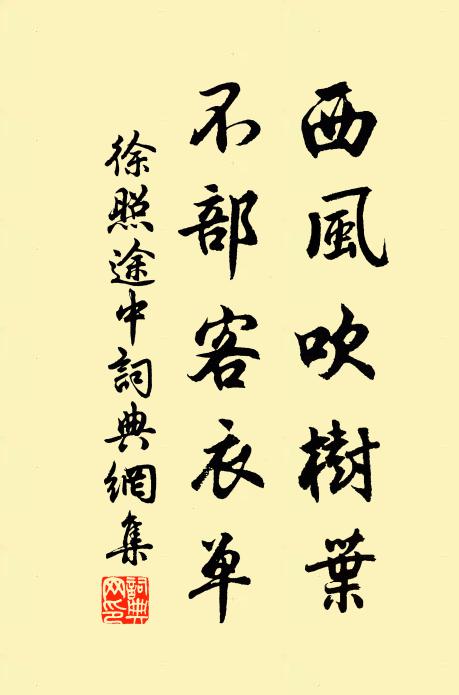 西風吹樹葉
不部客衣单
徐照途中詞典網集
詞典网印